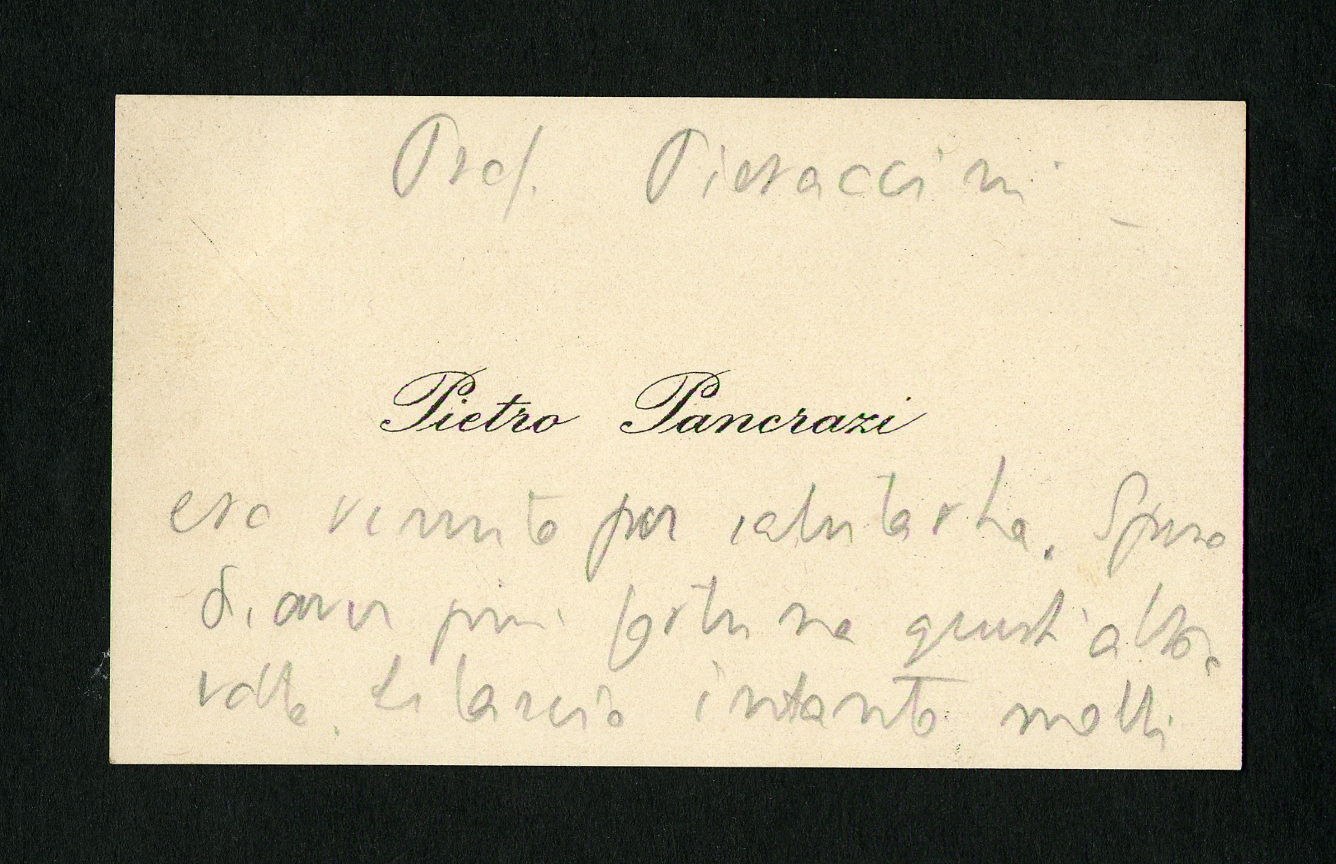 Prof. Pieraccini
Pietro Pancrazi
ero venuto per salutarla. Spero
di aver più fortuna quest'altra
volta. Le lascio intanto molti